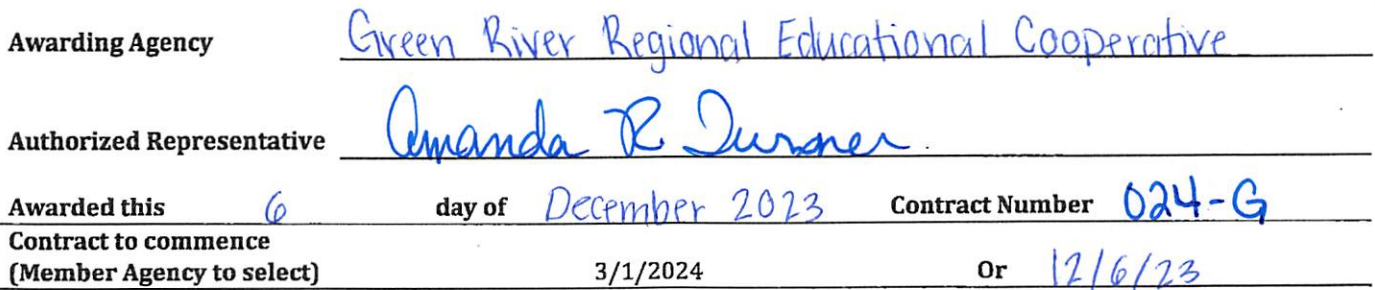 Awarding Agency Green River Regional Educational Cooperative
Authorized Representative Amanda R Turner
Awarded this 6 day of December 2023 Contract Number 024-G
Contract to commence
(Member Agency to select) 3/1/2024 Or 12/6/23